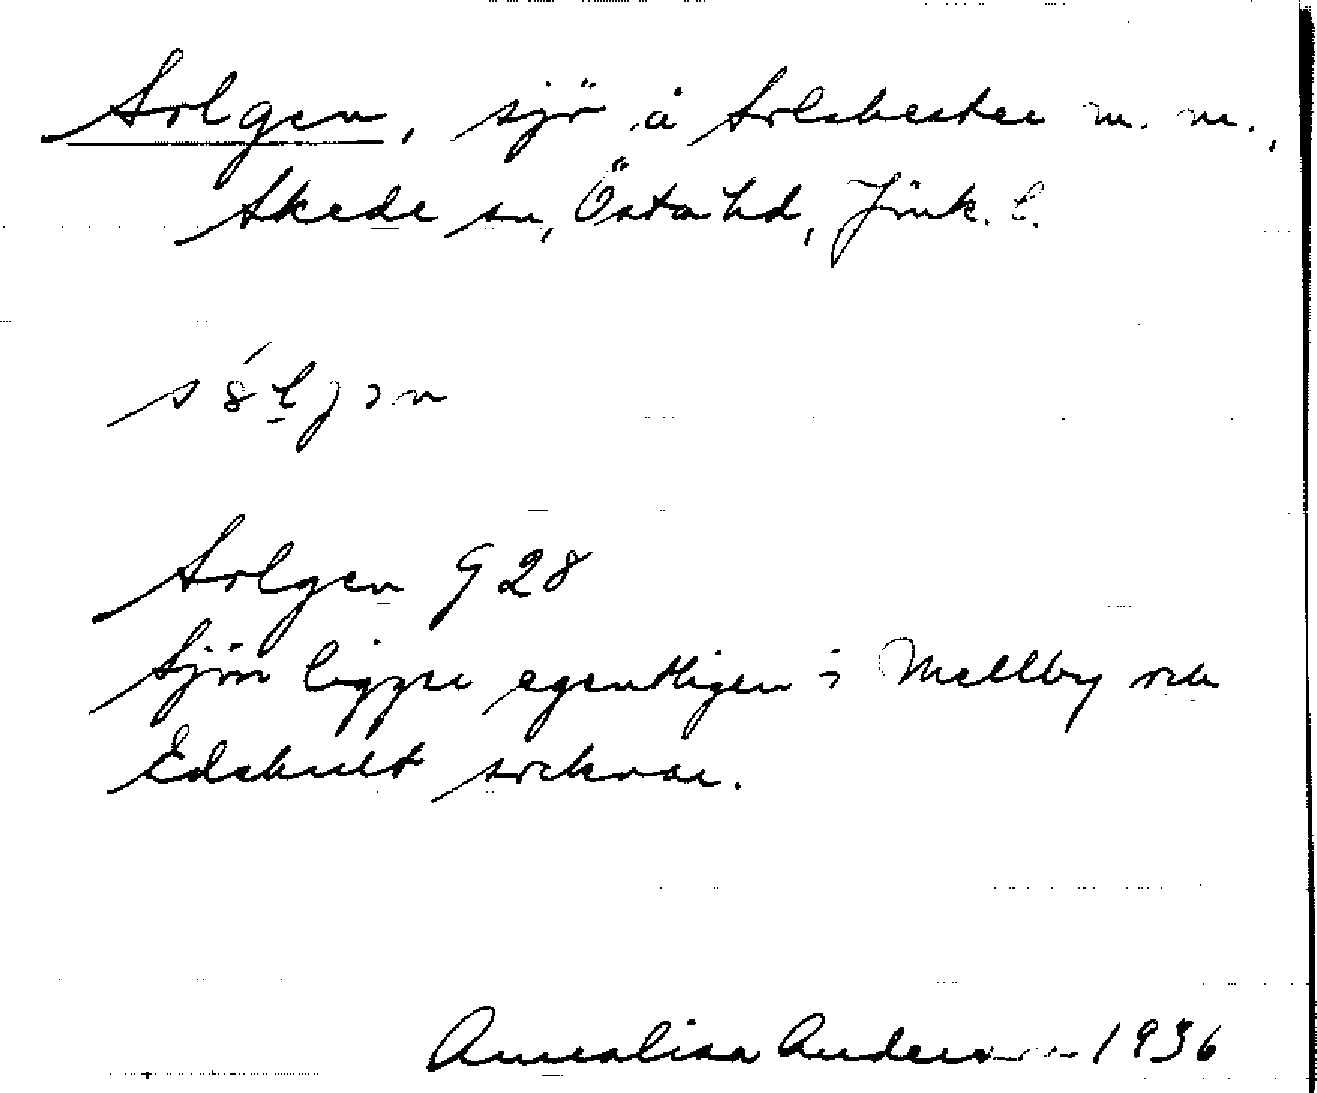 Solgen, sjö å Solabester m. m.,
Skede sn, Östra hd, Jönk. l.
Solgen G 28
Sjön ligger egentligen i Mellby och
Edshult socknar.
Annalisa Andersson 1936